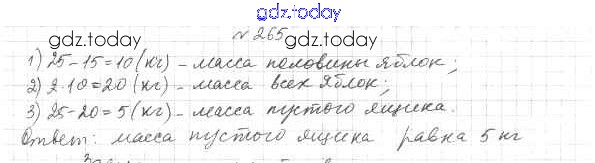 gdz.today
№ 265
gdz.today gdz.today
1) 25-15=10 (кг) - масса половины яблок;
2) 2·10=20 (кг) - масса всех яблок;
3) 25-20=5 (кг) - масса пустого ящика.
Ответ: масса пустого ящика равна 5 кг